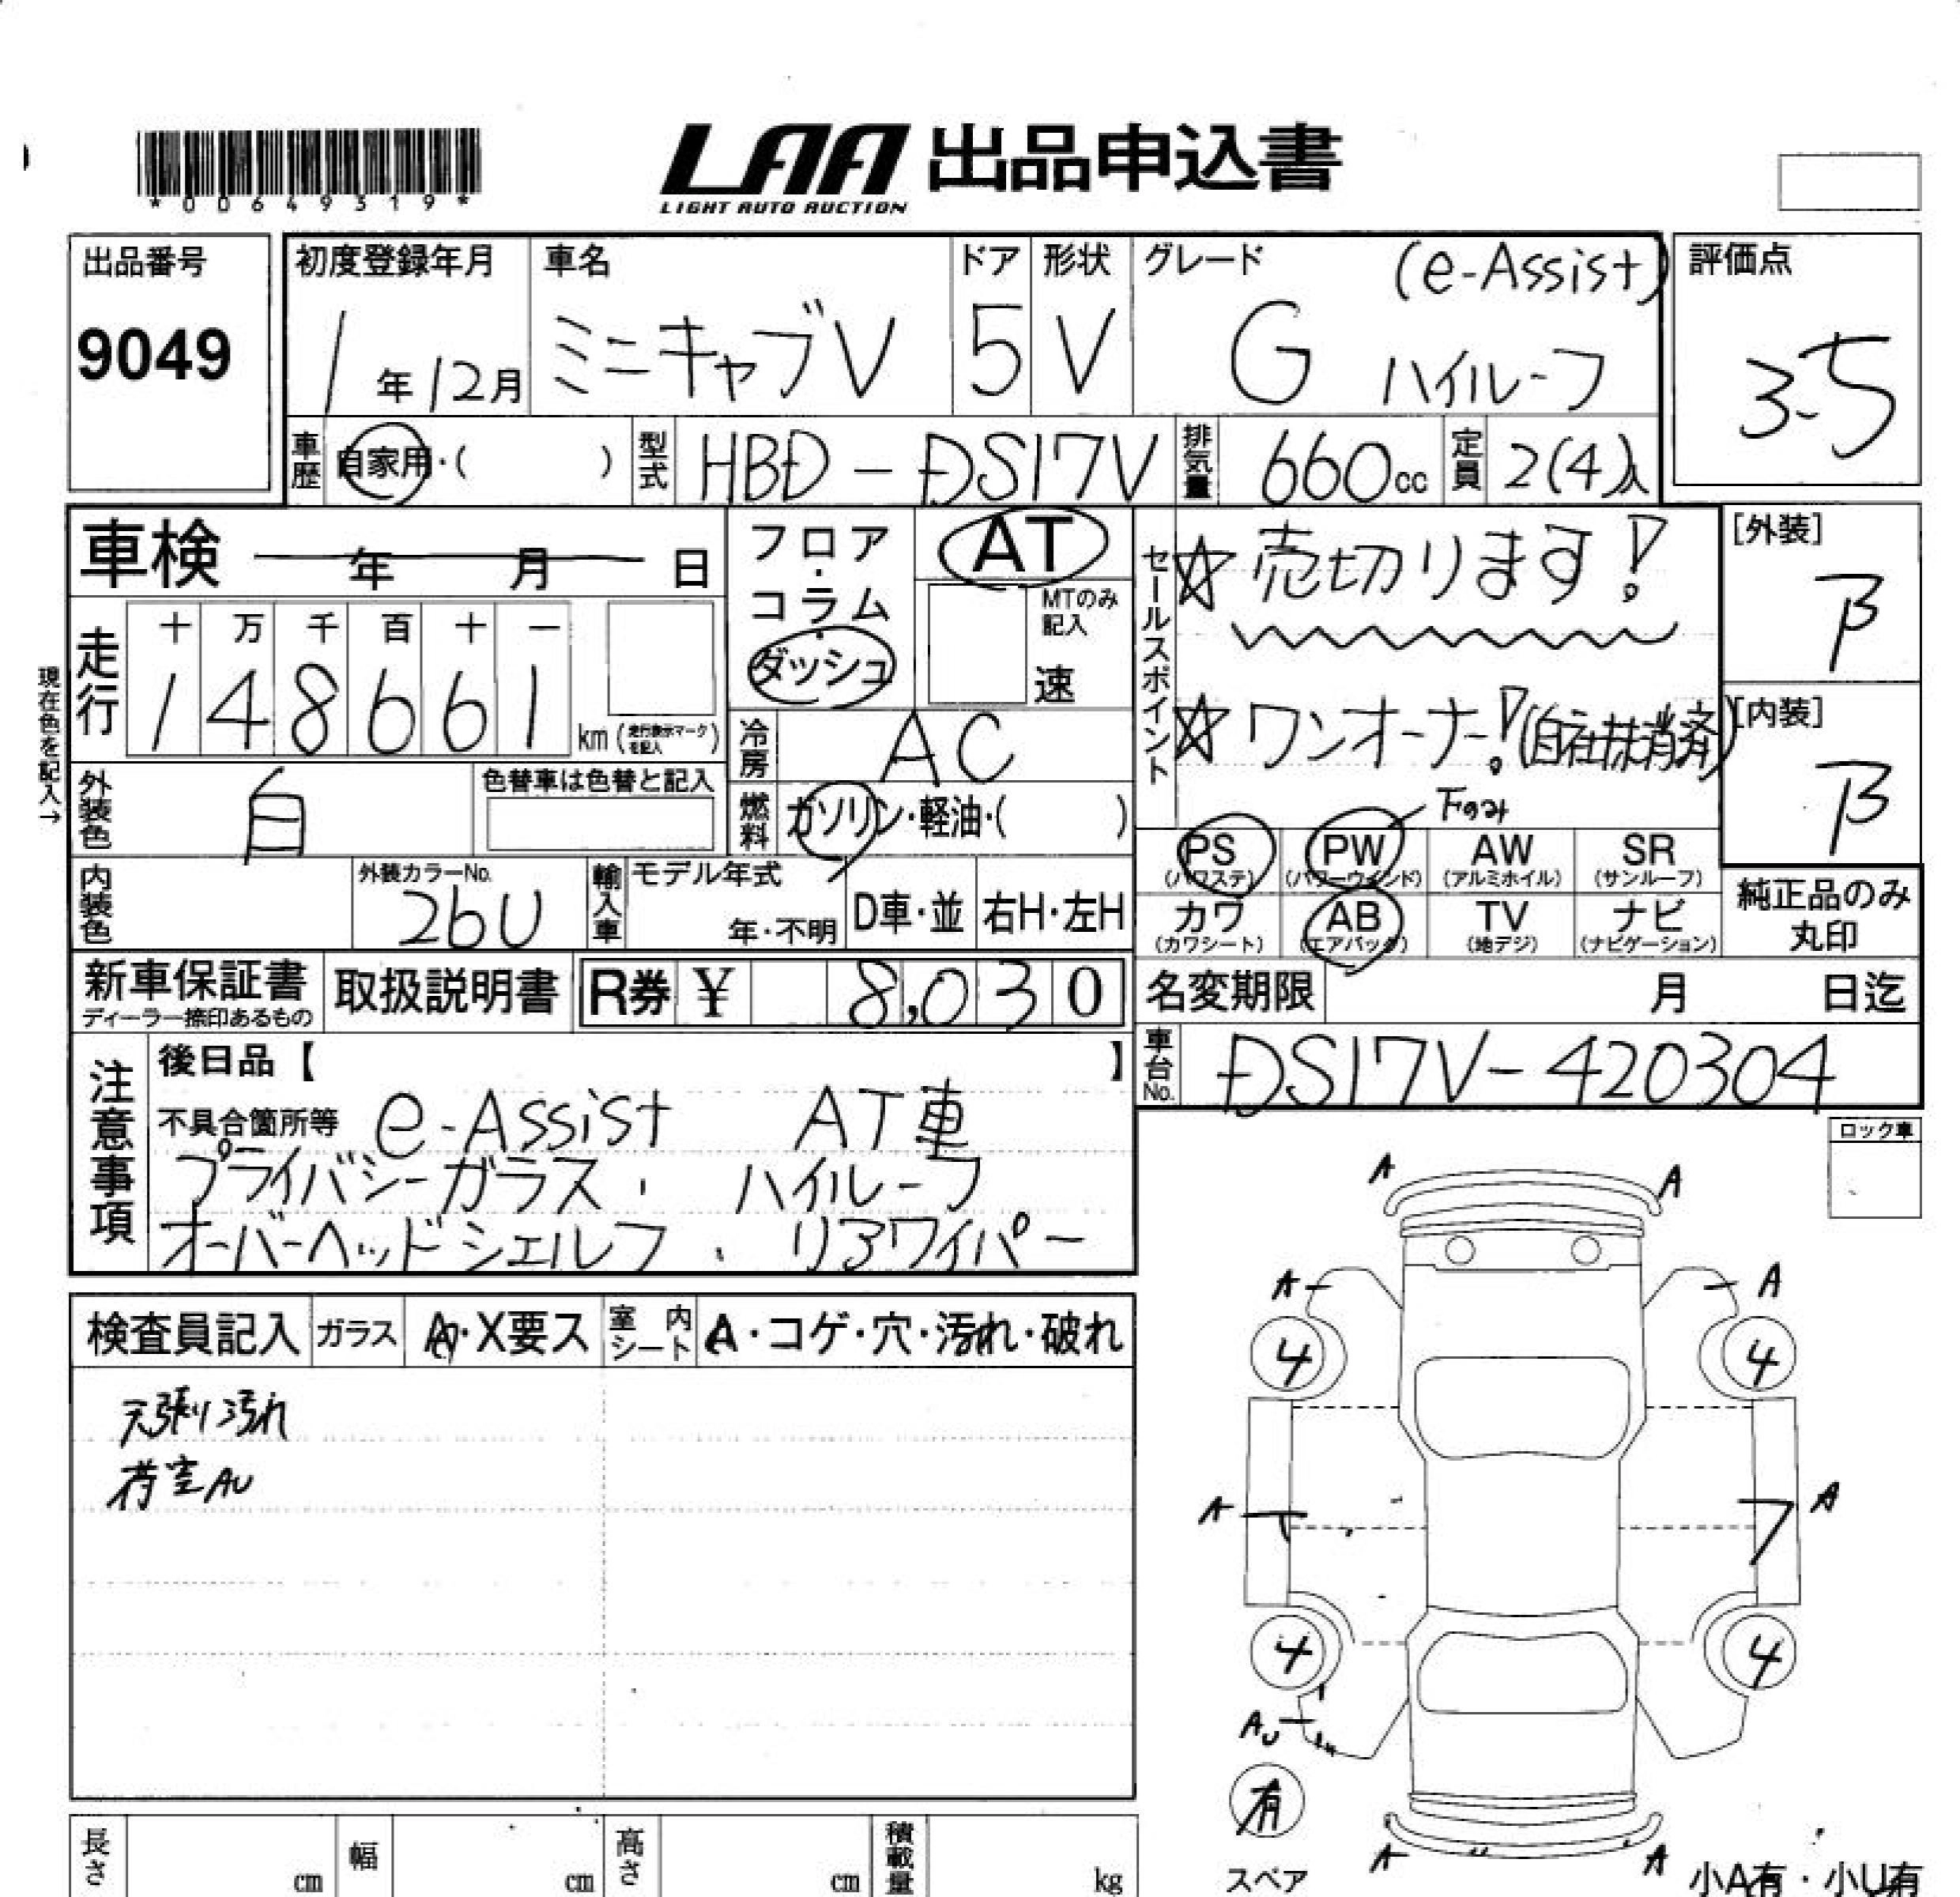 *00649319*
LAA 出品申込書
LIGHT AUTO AUCTION
出品番号
9049
初度登録年月
1年12月
車名
ミニキャブV
ドア
5
形状
V
グレード
(e-Assist)
G ハイルーフ
評価点
3.5
車歴
自家用・( )
型式
HBD-DS17V
排気量
660cc
定員
2(4)人
車検 年 月 日
フロア・コラム・ダッシュ
AT
MTのみ記入
速
セールスポイント
☆売切ります!
☆ワンオーナー!(自社抹消済)
[外装]
B
[内装]
B
現在色を記入→
走行
十 万 千 百 十 一
1 4 8 6 6 1
km(走行表示マークを記入)
冷房
AC
外装色
白
色替車は色替と記入
燃料
ガソリン・軽油・( )
下のみ
PS (パワステ)
PW (パワーウインド)
AW (アルミホイル)
SR (サンルーフ)
カワ (カワシート)
AB (エアバッグ)
TV (地デジ)
ナビ (ナビゲーション)
純正品のみ
丸印
内装色
外装カラーNo.
26U
輸入車
モデル年式
年・不明
D車・並
右H・左H
新車保証書
ディーラー捺印あるもの
取扱説明書
R券 ¥ 8,030
名変期限 月 日迄
車台No.
DS17V-420304
注意事項
後日品【 】
不具合箇所等 e-Assist AT車
プライバシーガラス・ ハイルーフ
オーバーヘッドシェルフ・リアワイパー
ロック車
検査員記入
ガラス
A・X要ス
室内シート
A・コゲ・穴・汚れ・破れ
天張り汚れ
荷室AU
A A
A A
4 4
A A
4 4
AU
有
スペア
A A
小A有・小U有
長さ cm
幅 cm
高さ cm
積載量 kg